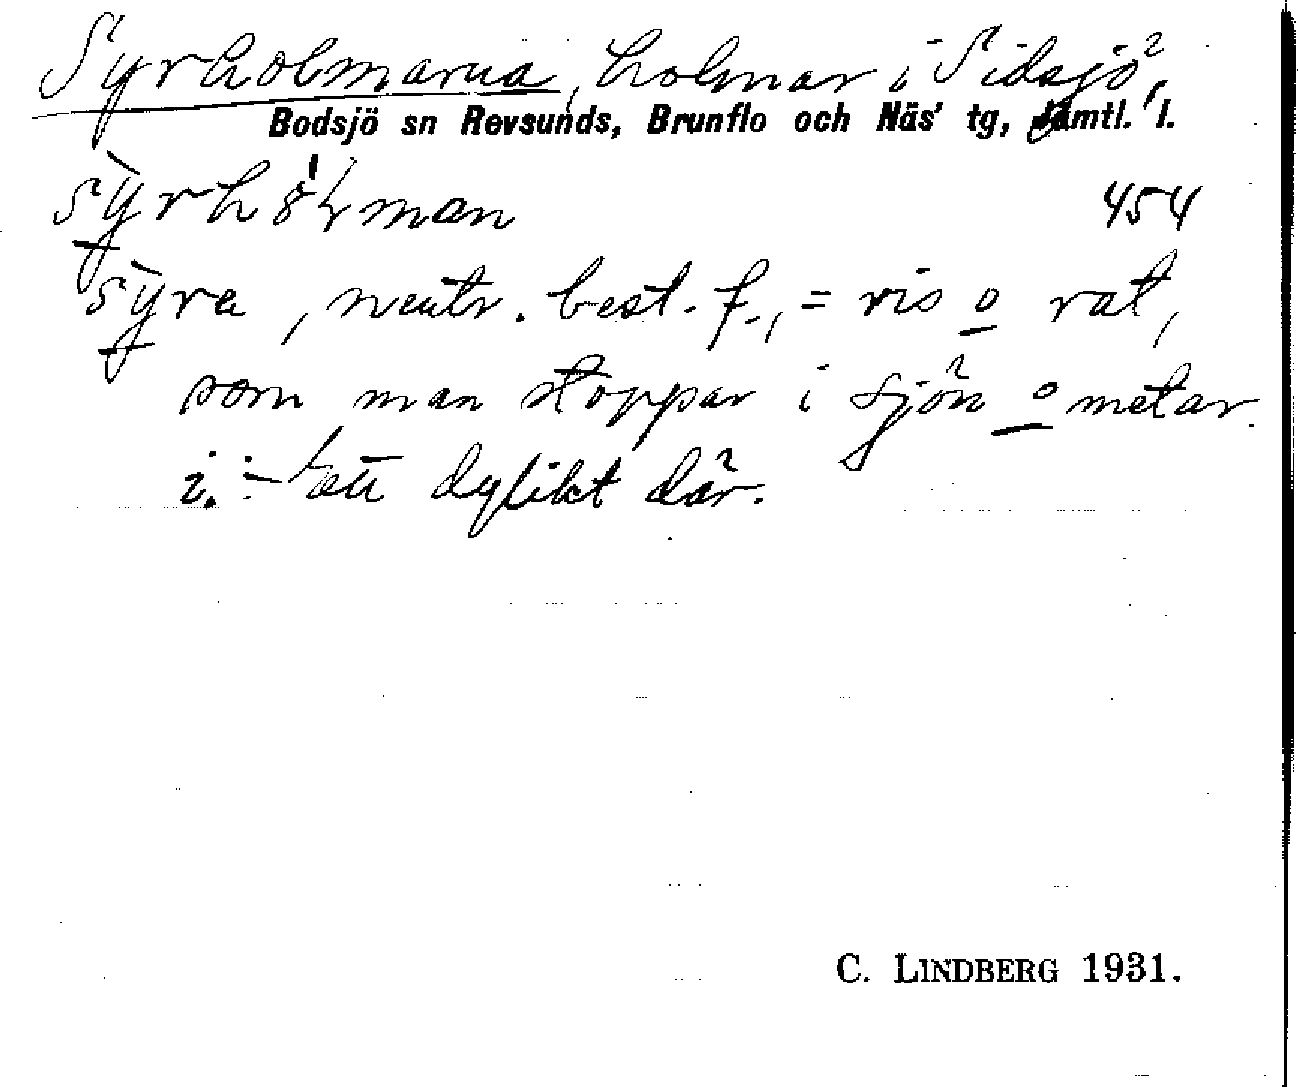 Syrholmarna, holmar i Sidsjö,
Bodsjö sn Revsunds, Brunflo och Näs' tg, Jämtl. l.
454
sỳra, neutr. best. f., = ris o rat,
som man stoppar i sjön o metar.
i. ett dylikt där.
C. LINDBERG 1931.